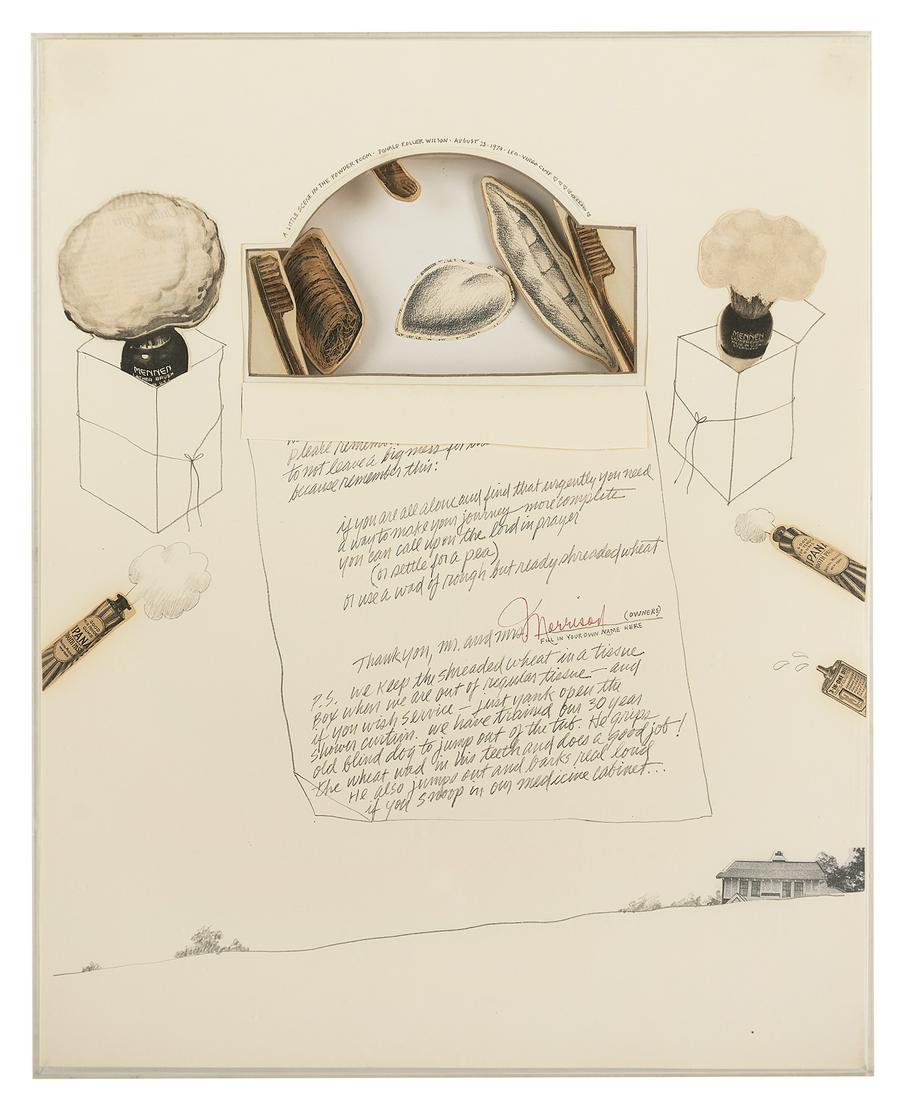 A LITTLE SCENE IN THE POWDER ROOM · DONALD ROLLER WILSON · AUGUST 23 · 1970 · LEO-VIRGO CUSP
MENNEN
LATHER BRUSH
MENNEN
please remember
to not leave a big mess for the
because remember this:
if you are all alone and find that urgently you need
a way to make your journey more complete
you can call upon the lord in prayer
(or settle for a pea)
or use a wad of rough but ready shreaded wheat
Thank you, mr. and mrs. Morrison (OWNERS)
FILL IN YOUR OWN NAME HERE
P.S. we keep the shreaded wheat in a tissue
Box when we are out of regular tissue — and
if you wish service — just yank open the
shower curtain. we have trained our 30 year
old blind dog to jump out of the tub. He grips
the wheat wad in his teeth and does a good job!
He also jumps out and barks real loud
if you snoop in our medicine cabinet...
IPANA
IPANA